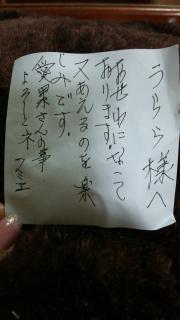 うらら様へ
おせわになって
おります。
又あえるのを楽
しみです。
愛果さんの事
よろしくネ
フミエ